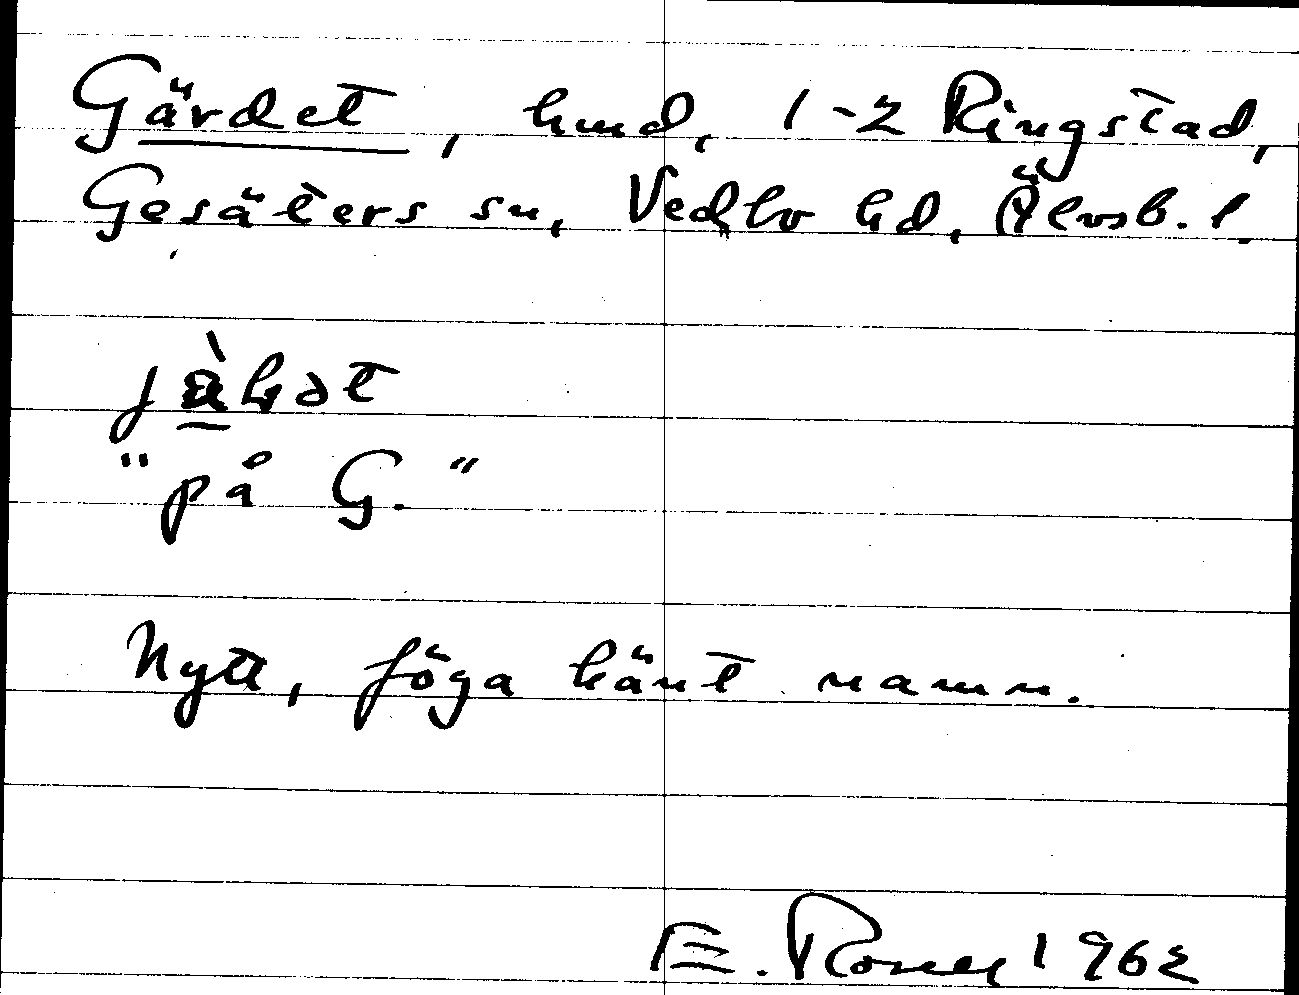 Gärdet, hmd, 1-2 Ringstad,
Gesäters sn, Vedbo hd, Älvsb. l.
"på G."
Nytt, föga känt namn.
E. 1962